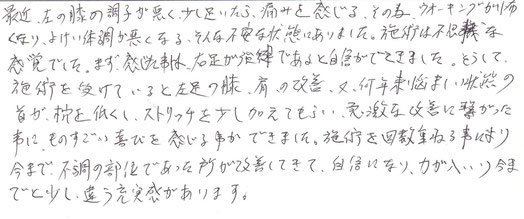 最近、左の膝の調子が悪く、少し歩いたら、痛みを感じる。その為、ウオーキングが
なり、よけい体調が悪くなる、そんな不安な状態にありました。施術は不思議な
感覚でした。まず、右足が であると自信ができました。そうして、
施術を受けていると左足の膝、肩の改善、又、何年来悩ましい状態の
首が、枕を低くし、ストリッチを少し加えてもらい、急激な改善に繋がった
事に、ものすごい喜びを感じる事ができました。施術を回数重ねる事により
今まで、不調の部位であった所が改善してきて、自信になり、力が入いり今ま
でと少し違う充実感があります。